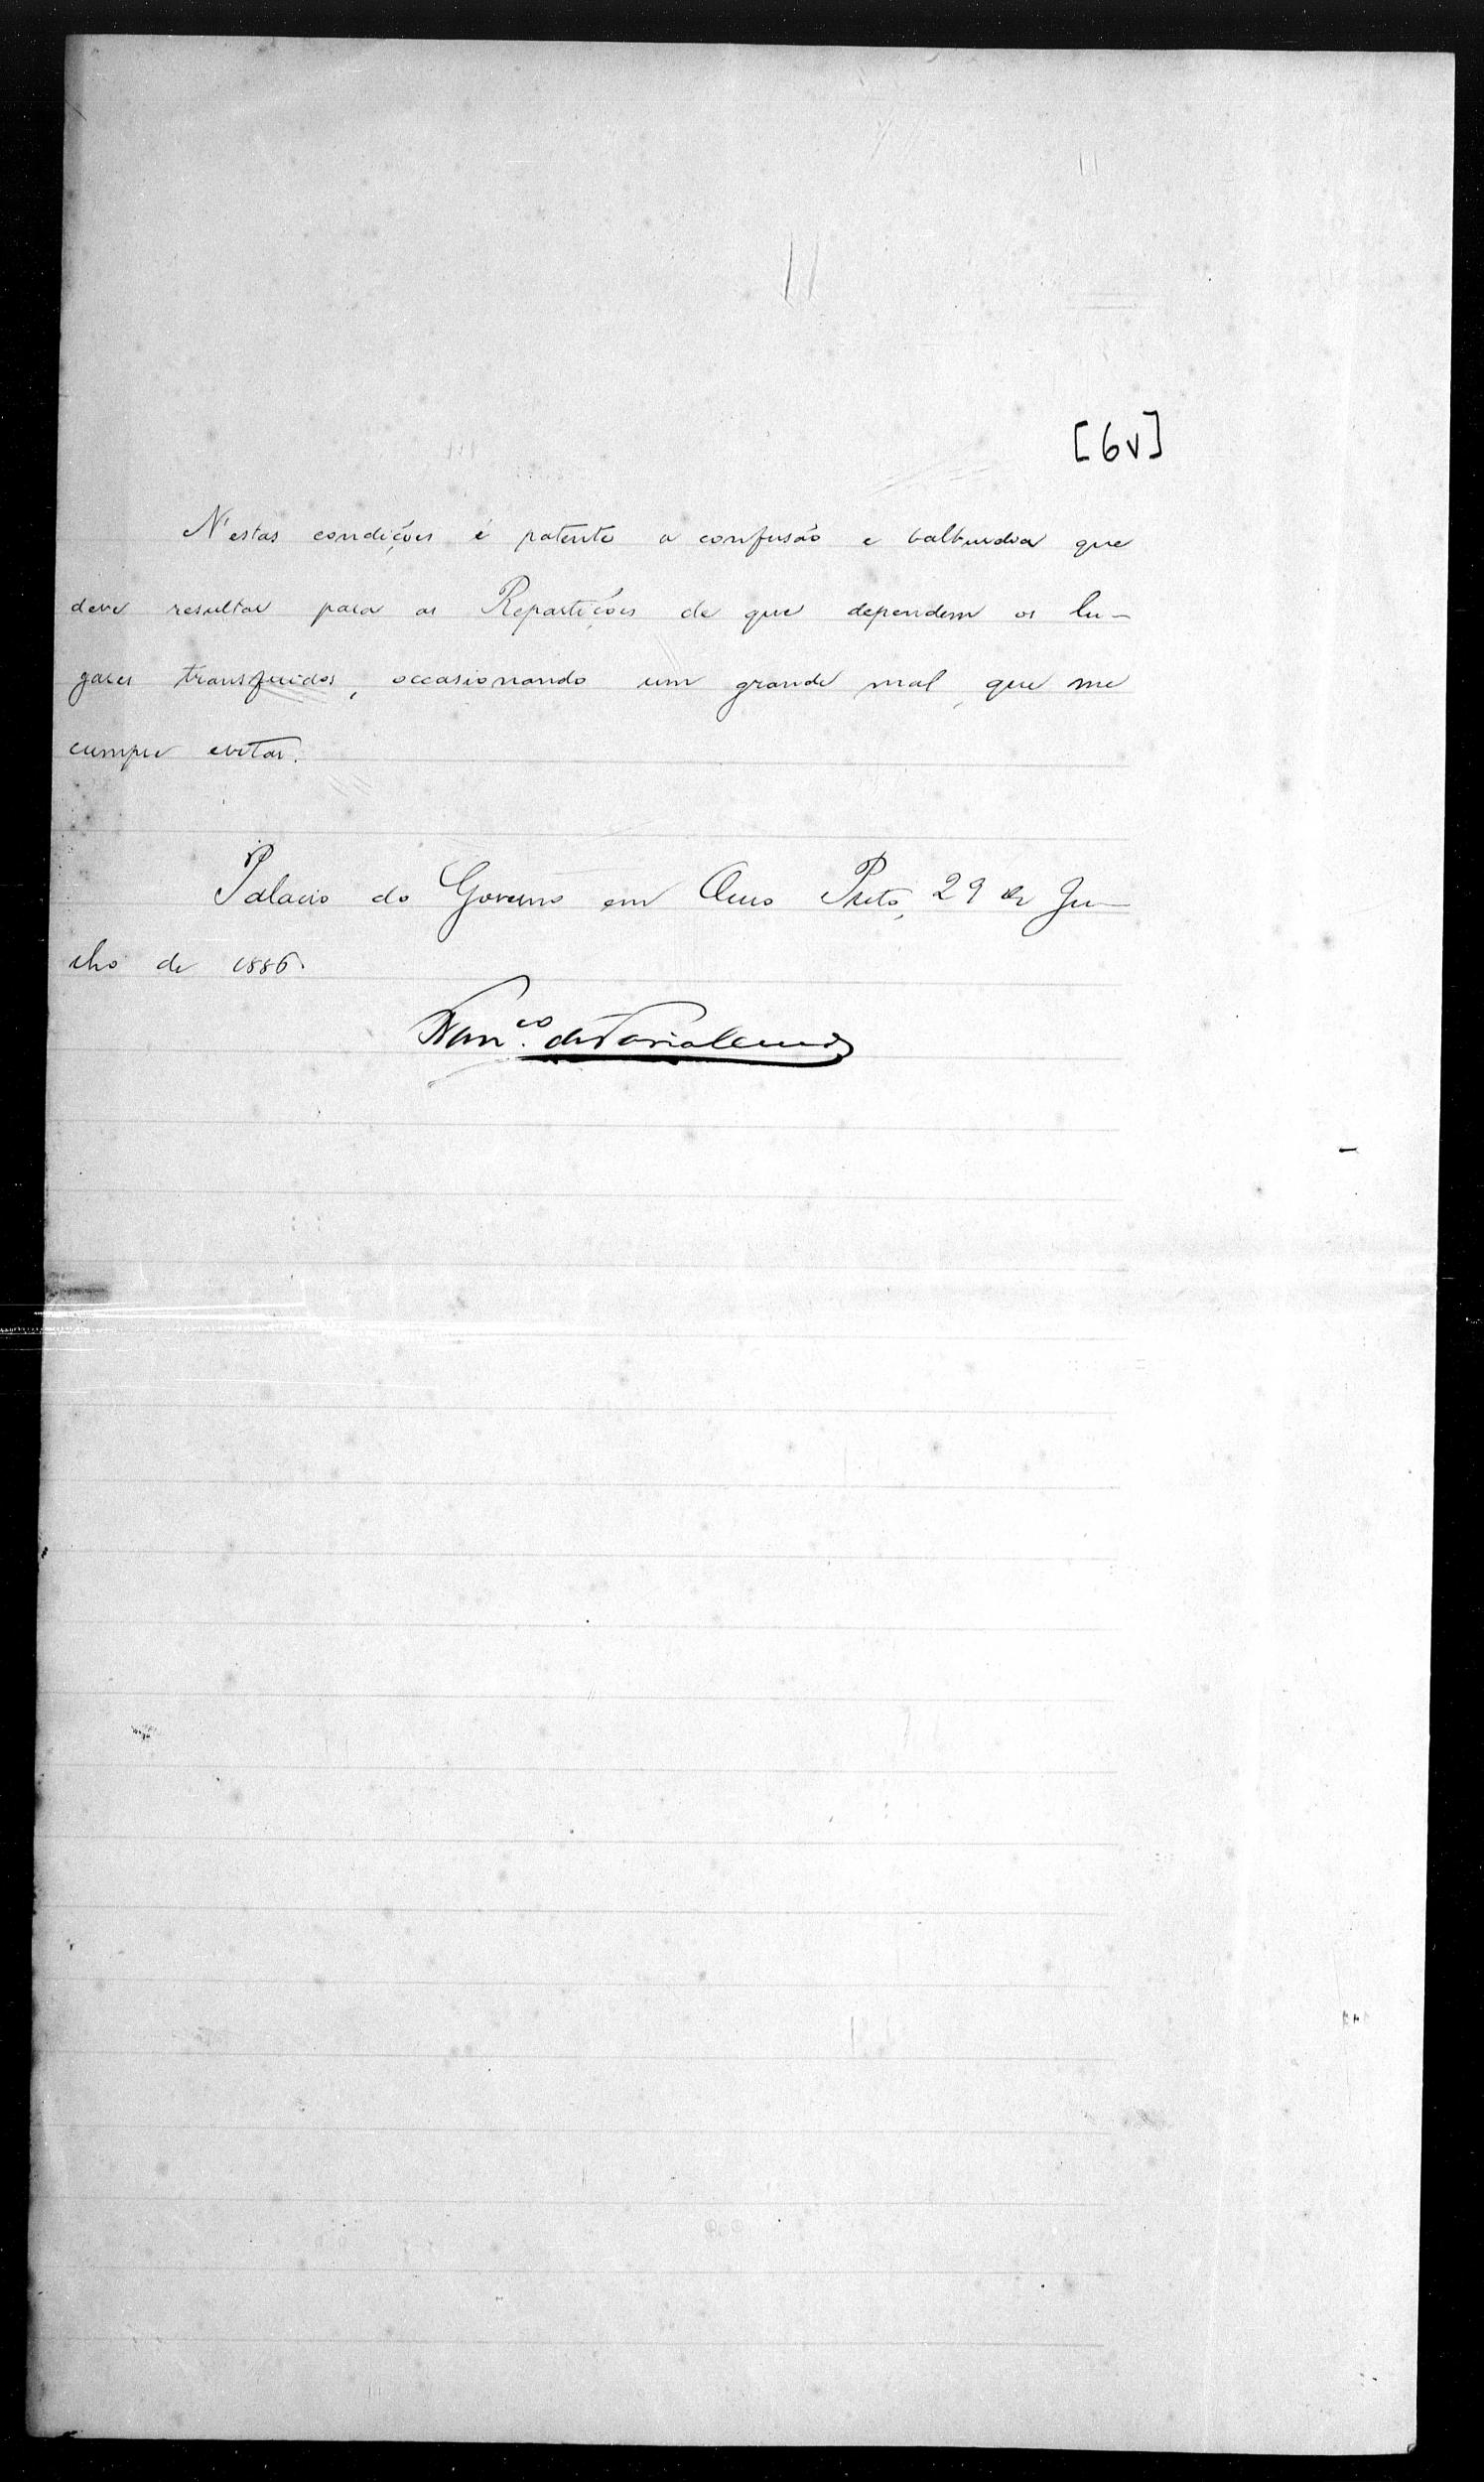 [6v]
N'estas condições é patente a confusão e balburdia que
deve resultar para as Repartições de que dependem os lu-
gares transferidos, occasionando um grande mal, que me
cumpre evitar.
Palacio do Governo em Ouro Preto, 29 de Ju-
nho de 1886.
Franco. de Faria Lemos